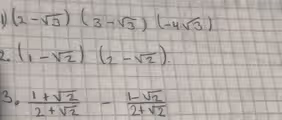 1) (2-√3) (3-√3) (-4√3)
2. (1-√2) (2-√2).
3. (1+√2)/(2+√2) - (1-√2)/(2+√2)